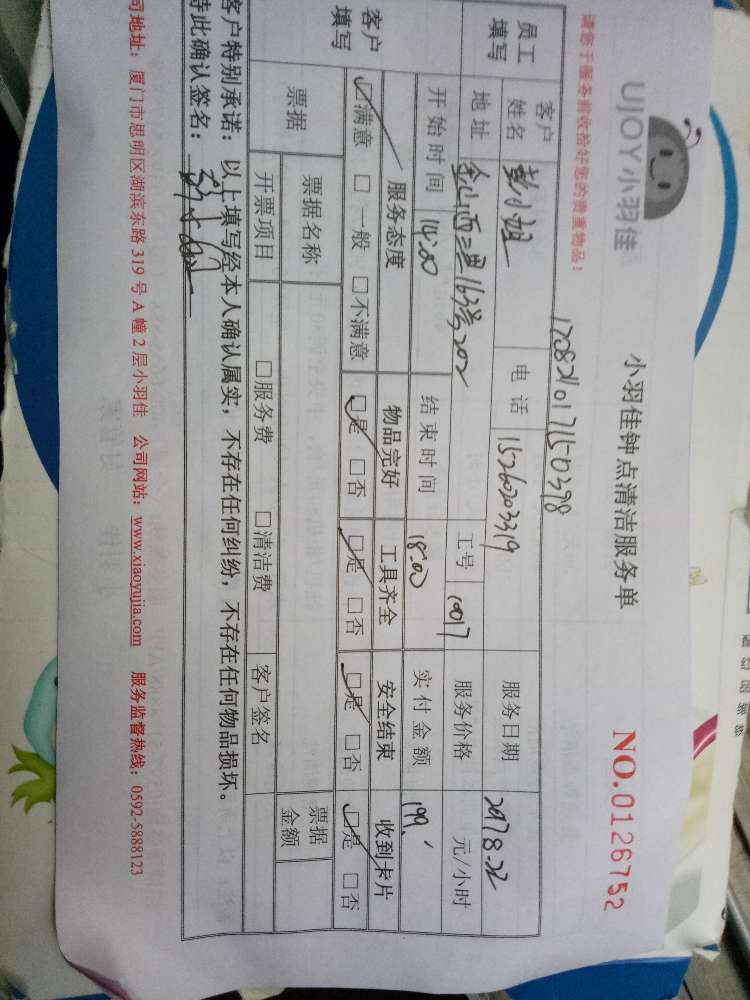 UJOY小羽佳
小羽佳钟点清洁服务单
NO.0126752
请您于服务前收拾好您的贵重物品！
17082101715-0398
员工填写
客户姓名 彭小姐 电话 15260203319 服务日期 2017.8.22
地址 金山西二里163号202 工号 1007 服务价格 元/小时
开始时间 14:00 结束时间 18:00 实付金额 199.
客户填写
服务态度 物品完好 工具齐全 安全结束 收到卡片
☑满意 □一般 □不满意 ☑是 □否 ☑是 □否 ☑是 □否 ☑是 □否
票据 票据名称 票据金额
开票项目 □服务费 □清洁费 客户签名
客户特别承诺：以上填写经本人确认属实，不存在任何纠纷，不存在任何物品损坏。
特此确认签名：
司地址：厦门市思明区湖滨东路 319 号 A 幢 2 层小羽佳 公司网站：www.xiaoyujia.com 服务监督热线：0592-5888123